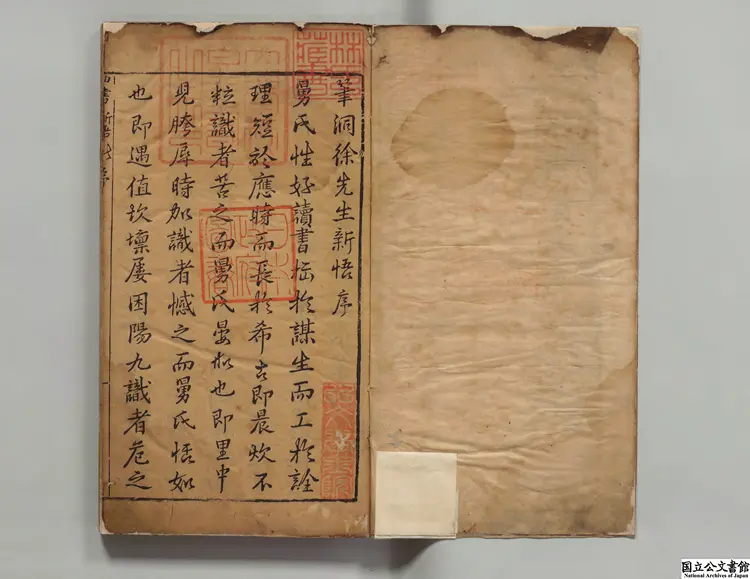 筆洞徐先生新悟序
舅氏性好讀書拙扵謀生而工扵詮
理短扵應時而長扵希古即晨炊不
粒識者苦之而舅氏晏如也即里中
兒胯辱時加識者憾之而舅氏恬如
也即遇值坎壈屢困陽九識者危之
林氏藏書
日本政府圖書
国立公文書館
National Archives of Japan